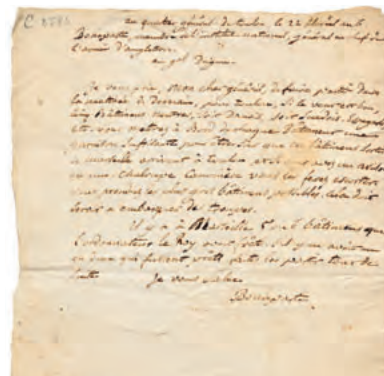 au quartier général de toulon le 22 floréal an 6
Bonaparte, membre de l'institut national, général en chef de
l'armée d'angleterre
au gal Dugua
Je vous prie, mon cher général, de faire partir dans
la matinée de demain, pour toulon,
cinq bâtimens neutres, soit Danois, soit Suédois.
vous mettrez à Bord de chaque Bâtiment une
garnison suffisante pour être sûr que ces bâtimens
de marseille arrivent à toulon, et si vous avez un aviso
ou une chaloupe canonnière vous les ferez escorter
vous prendrez les plus gros bâtimens possibles, cela doit
servir à embarquer des troupes.
il y a à Marseille 5 ou 6 bâtimens que
l'ordonnateur le Roy avait
ou deux qui fussent prêts faites les partir tout de
suite
Je vous salue
Bonaparte